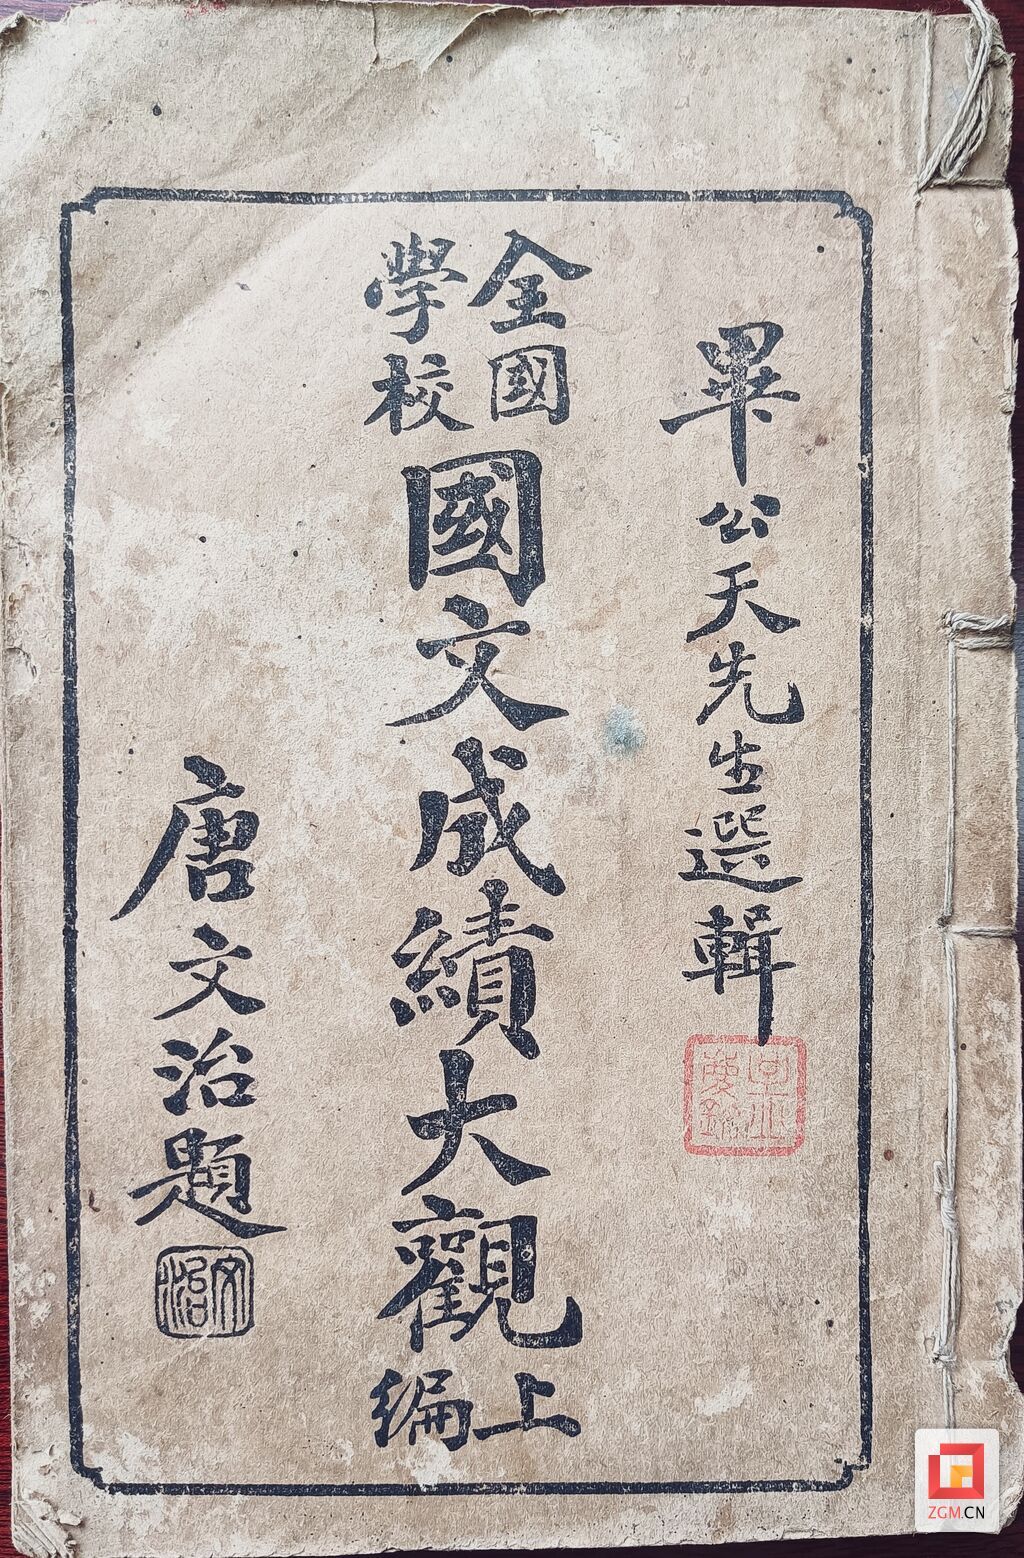 畢公天先生選輯
全國
學校
國文成績大觀
上
編
唐文治題
文治
ZGM.CN